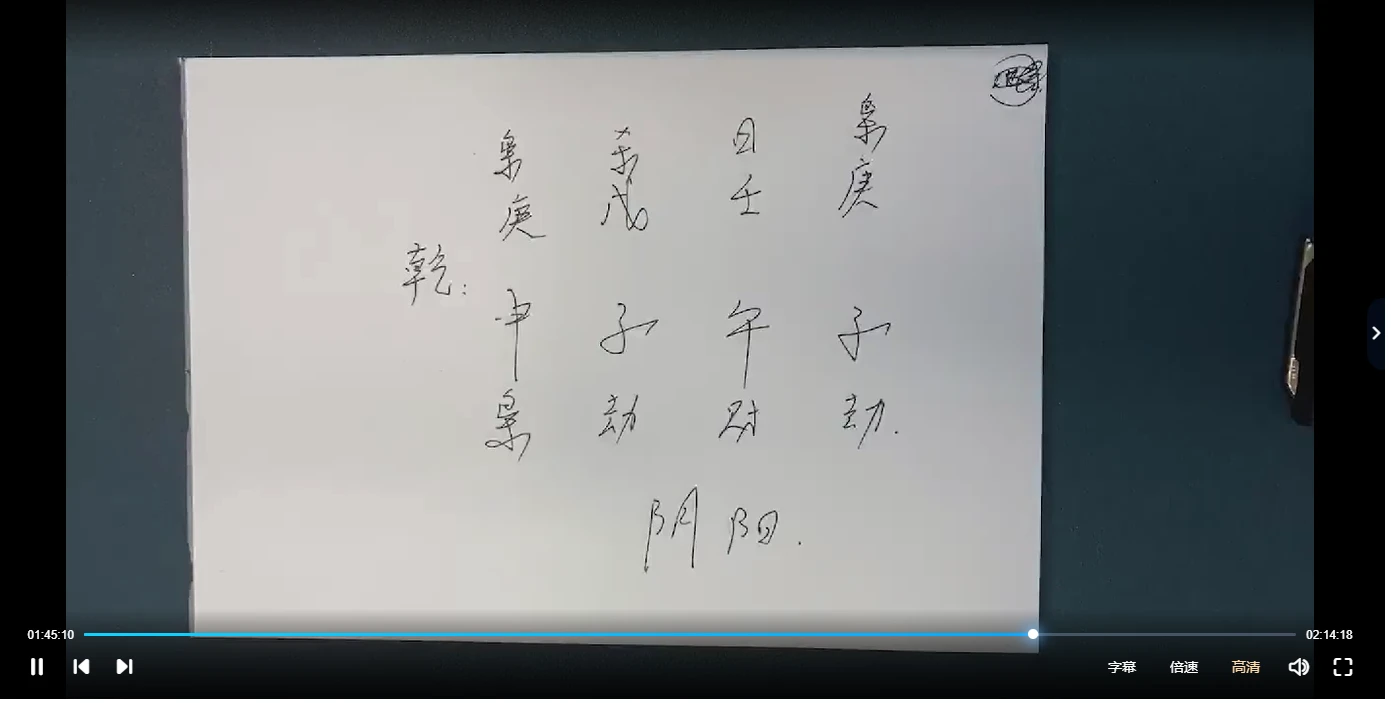 枭 杀 日 枭
庚 戊 壬 庚
乾:
申 子 午 子
枭 劫 财 劫.
阴阳.
01:45:10
02:14:18
字幕 倍速 高清